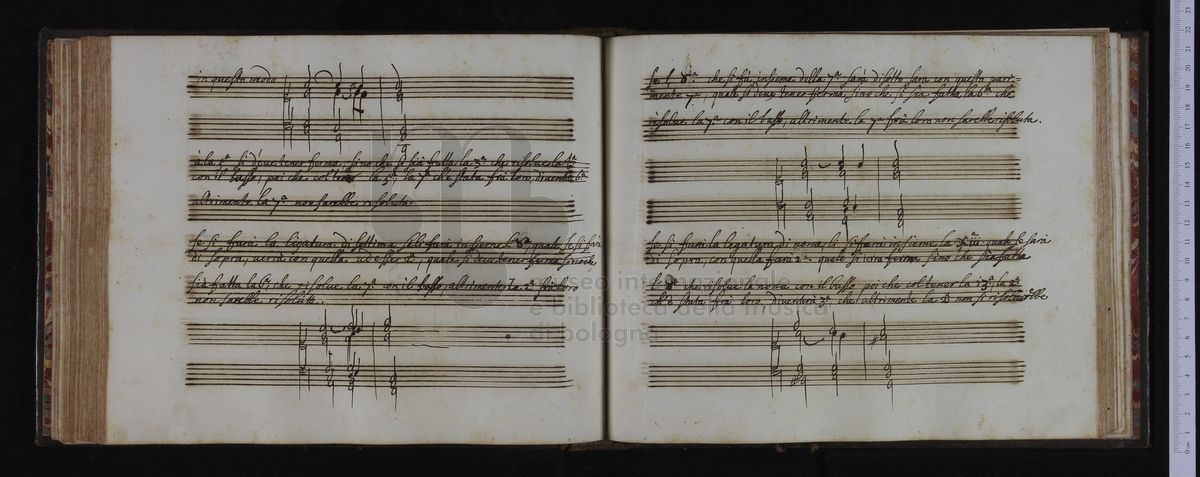 in questo modo
la 7.ª si deve tener ferma, sino che si sia fatta la 3.ª che risolve la
con il basso, poi che col tener la 3.ª la 7.ª che stata frà loro, diventa 6.ª
altrimente la 7.ª non sarebbe risoluta.
Se si farà la ligatura di settima, se li farà insieme l'8.ª quale se si farà
di sopra, verrà con quella quale si deve tener ferma sinche
sia fatta la 6.ª che risolve la 7.ª con il basso, altrimente la 7.ª frà loro
non sarebbe risoluta.
se l'8.ª che si fà insieme della 7.ª sarà di sotto farà con questa pari
mente 7.ª, quale si deve tener ferma, sino che si sia fatta la 6.ª che
risolve la 7.ª con il basso, altrimente la 7.ª frà loro non sarebbe risoluta.
Se si farà la legatura di nona, li si farà insieme la X.ma quale se sarà
di sopra, con quella farà 2.ª quale si terrà ferma sino che sia fatta
l'8.ª che risolve la nona con il basso poi che col tener la la 2.ª
ch'è stata frà loro, diventerà 3.ª che altrimente la 2.ª non si risolverebbe
museo internazionale
e biblioteca della musica
di bologna
0 cm 1 2 3 4 5 6 7 8 9 10 11 12 13 14 15 16 17 18 19 20 21 22 23